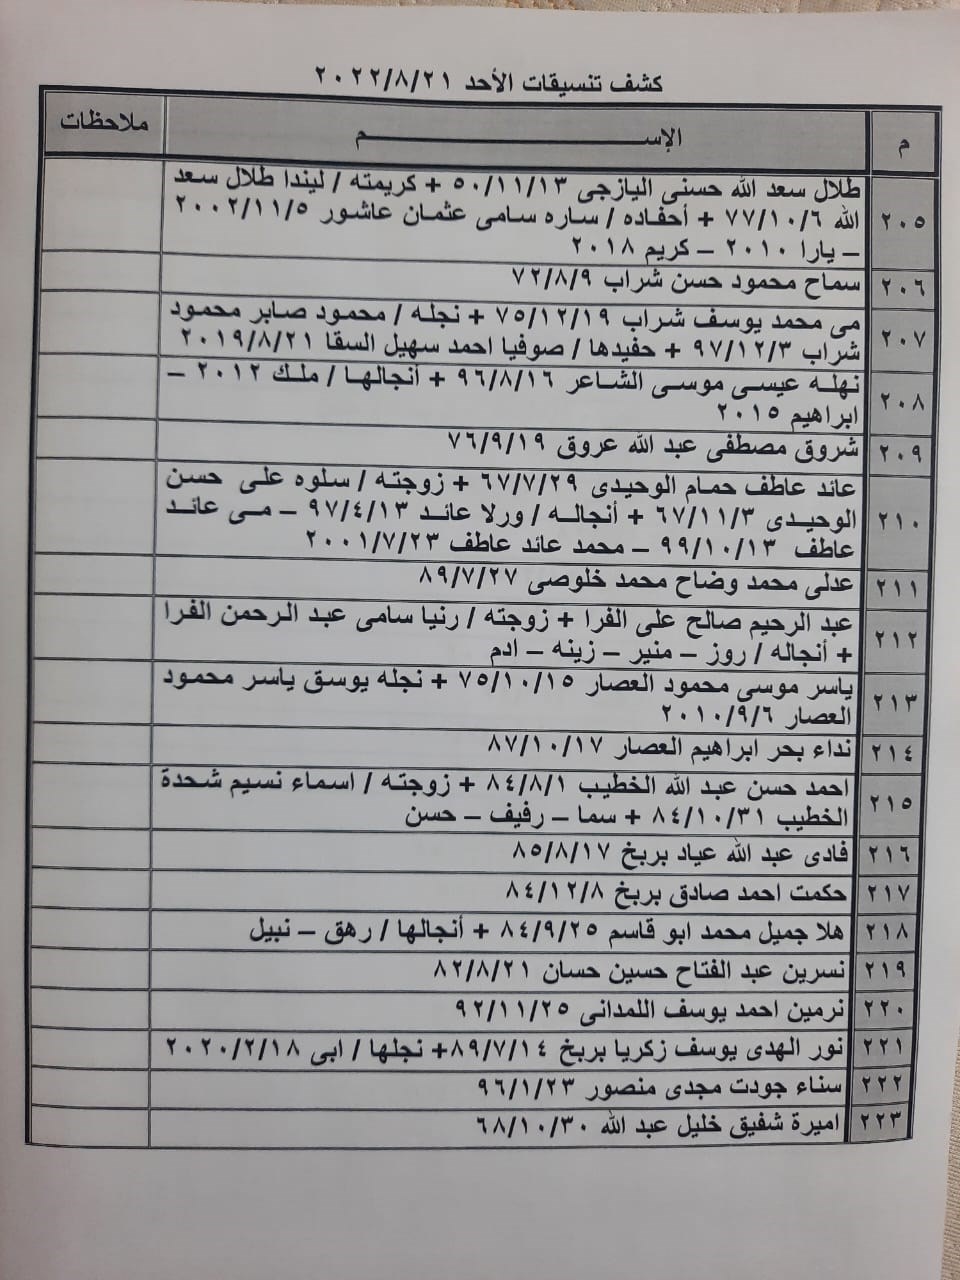 كشف تنسيقات الأحد ٢٠٢٢/٨/٢١
م الإســـــــــــم ملاحظات
٢٠٥ طلال سعد الله حسنى اليازجى ٥٠/١١/١٣ + كريمته / ليندا طلال سعد
الله ٧٧/١٠/٦ + أحفاده / ساره سامى عثمان عاشور ٢٠٠٢/١١/٥
– يارا ٢٠١٠ – كريم ٢٠١٨
٢٠٦ سماح محمود حسن شراب ٧٢/٨/٩
٢٠٧ مى محمد يوسف شراب ٧٥/١٢/١٩ + نجله / محمود صابر محمود
شراب ٩٧/١٢/٣ + حفيدها / صوفيا احمد سهيل السقا ٢٠١٩/٨/٢١
٢٠٨ نهله عيسى موسى الشاعر ٩٦/٨/١٦ + أنجالها / ملك ٢٠١٢ –
ابراهيم ٢٠١٥
٢٠٩ شروق مصطفى عبد الله عروق ٧٦/٩/١٩
٢١٠ عائد عاطف حمام الوحيدى ٦٧/٧/٢٩ + زوجته / سلوه على حسن
الوحيدى ٦٧/١١/٣ + أنجاله / ورلا عائد ٩٧/٤/١٣ – مى عائد
عاطف ٩٩/١٠/١٣ – محمد عائد عاطف ٢٠٠١/٧/٢٣
٢١١ عدلى محمد وضاح محمد خلوصى ٨٩/٧/٢٧
٢١٢ عبد الرحيم صالح على الفرا + زوجته / رنيا سامى عبد الرحمن الفرا
+ أنجاله / روز – منير – زينه – ادم
٢١٣ ياسر موسى محمود العصار ٧٥/١٠/١٥ + نجله يوسق ياسر محمود
العصار ٢٠١٠/٩/٦
٢١٤ نداء بحر ابراهيم العصار ٨٧/١٠/١٧
٢١٥ احمد حسن عبد الله الخطيب ٨٤/٨/١ + زوجته / اسماء نسيم شحدة
الخطيب ٨٤/١٠/٣١ + سما – رفيف – حسن
٢١٦ فادى عبد الله عياد بربخ ٨٥/٨/١٧
٢١٧ حكمت احمد صادق بربخ ٨٤/١٢/٨
٢١٨ هلا جميل محمد ابو قاسم ٨٤/٩/٢٥ + أنجالها / رهق – نبيل
٢١٩ نسرين عبد الفتاح حسين حسان ٨٢/٨/٢١
٢٢٠ نرمين احمد يوسف اللمدانى ٩٢/١١/٢٥
٢٢١ نور الهدى يوسف زكريا بربخ ٨٩/٧/١٤+ نجلها / ابى ٢٠٢٠/٢/١٨
٢٢٢ سناء جودت مجدى منصور ٩٦/١/٢٣
٢٢٣ اميرة شفيق خليل عبد الله ٦٨/١٠/٣٠